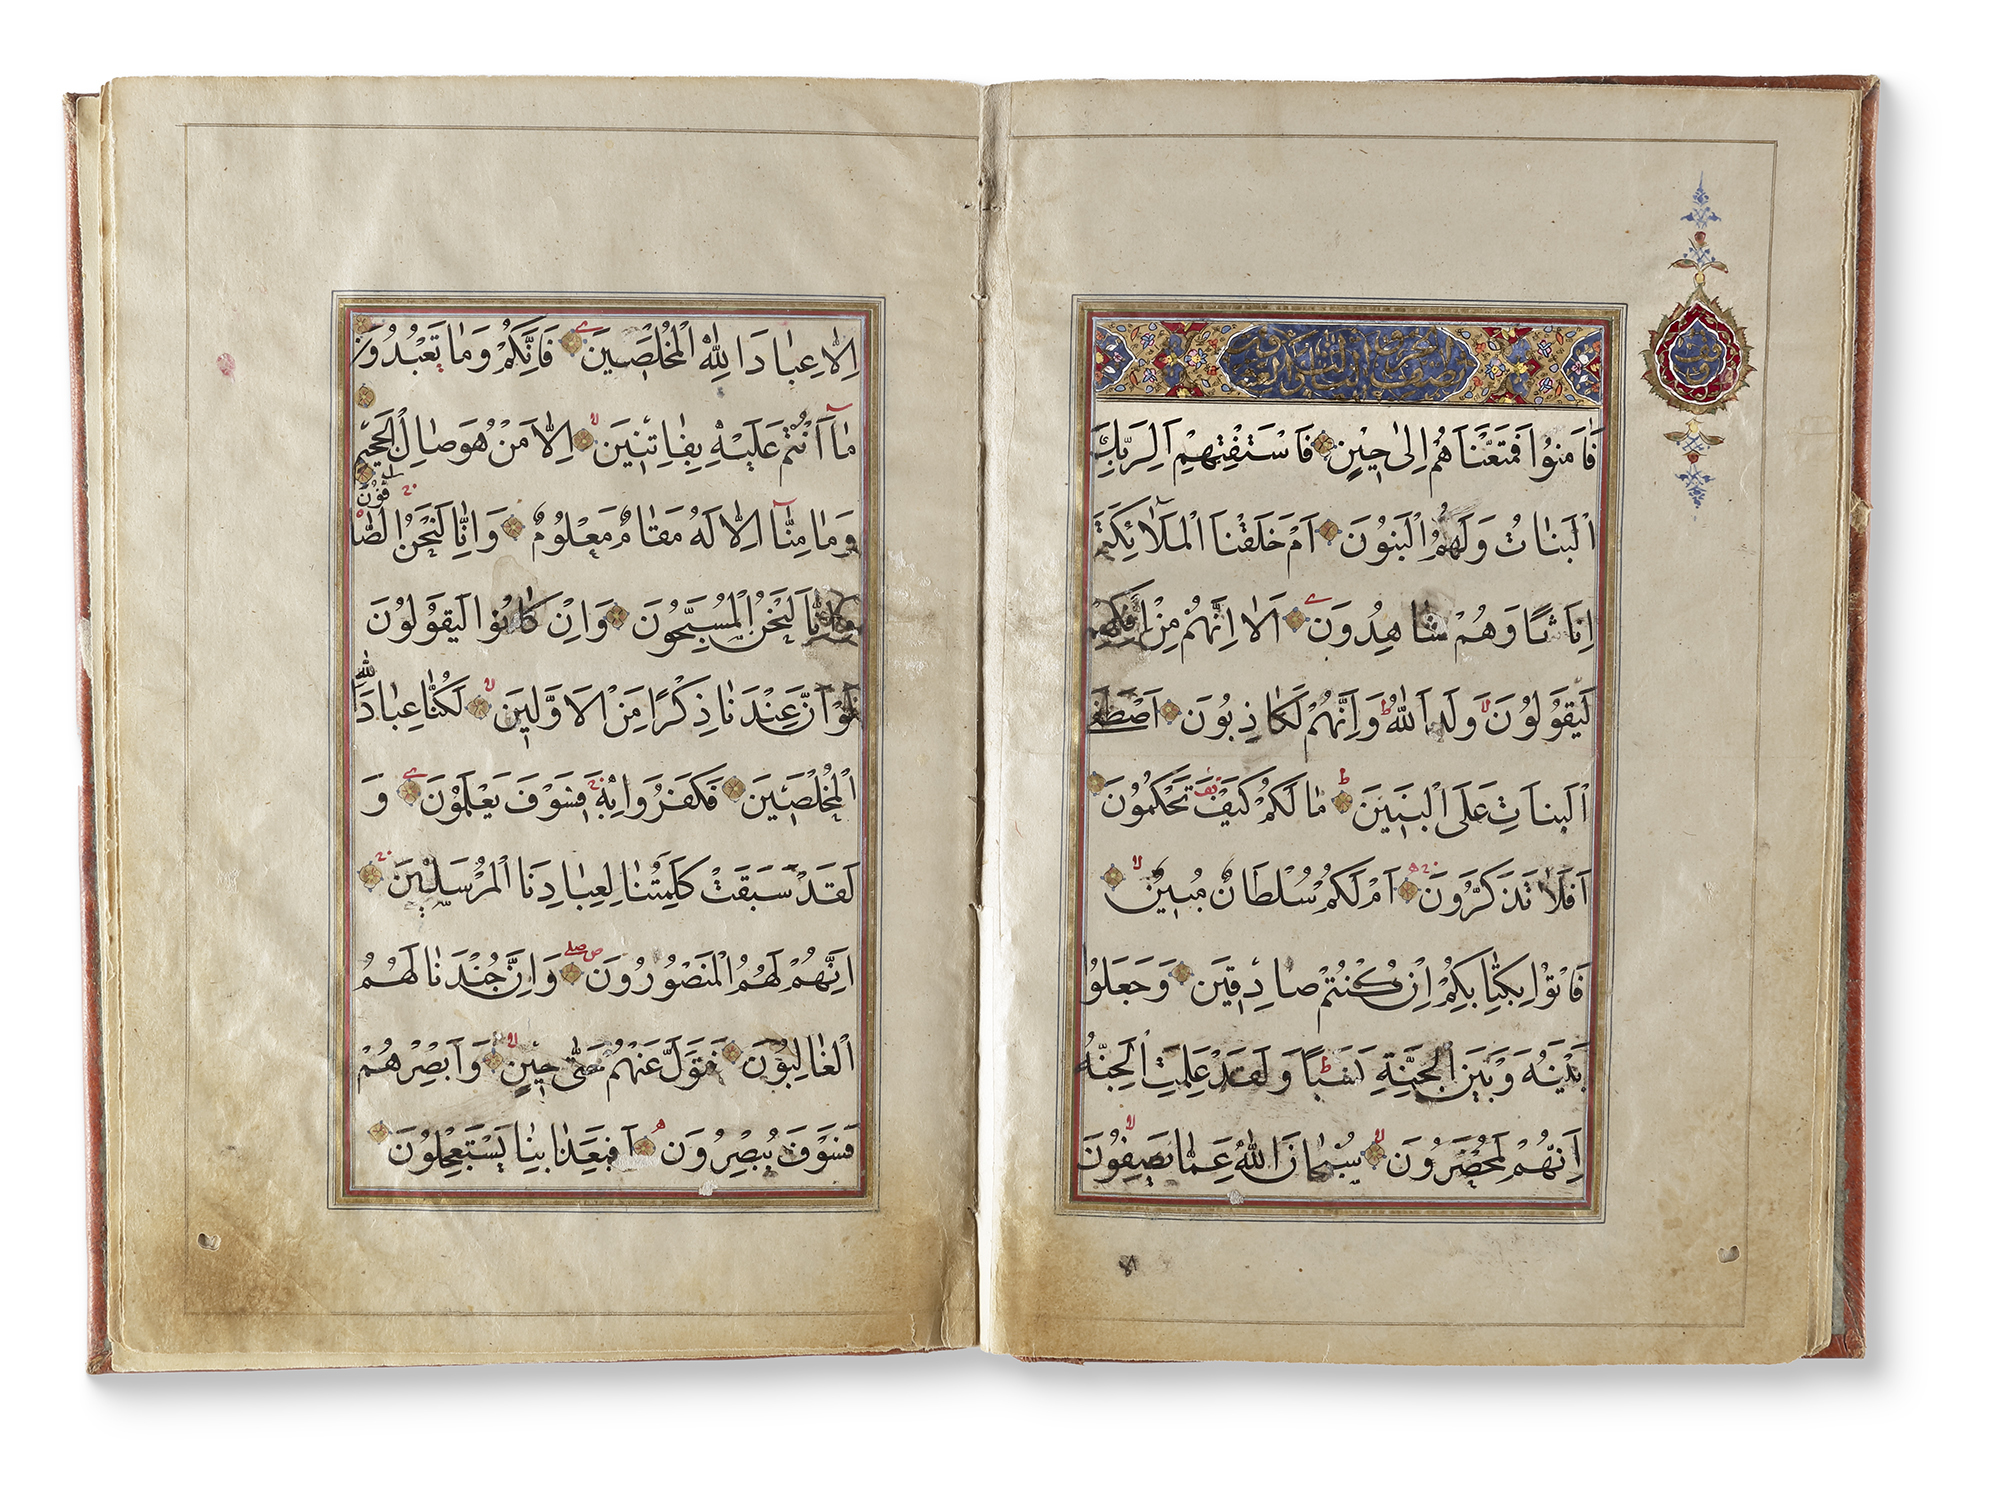 فَاٰمَنُوا فَمَتَّعْنَاهُمْ اِلٰى حِينٍ فَاسْتَفْتِهِمْ اَلِرَبِّكَ
الْبَنَاتُ وَلَهُمُ الْبَنُونَ اَمْ خَلَقْنَا الْمَلٰائِكَةَ
اِنَاثًا وَهُمْ شَاهِدُونَ اَلَا اِنَّهُمْ مِنْ اِفْكِهِمْ
لَيَقُولُونَ وَلَدَ اللّٰهُ وَاِنَّهُمْ لَكَاذِبُونَ اَصْطَفَى
الْبَنَاتِ عَلَى الْبَنِينَ مٰا لَكُمْ كَيْفَ تَحْكُمُونَ
اَفَلَا تَذَكَّرُونَ اَمْ لَكُمْ سُلْطَانٌ مُبِينٌ
فَاْتُوا بِكِتَابِكُمْ اِنْ كُنْتُمْ صَادِقِينَ وَجَعَلُوا
بَيْنَهُ وَبَيْنَ الْجِنَّةِ نَسَبًا وَلَقَدْ عَلِمَتِ الْجِنَّةُ
اِنَّهُمْ لَمُحْضَرُونَ سُبْحَانَ اللّٰهِ عَمَّا يَصِفُونَ
اِلَّا عِبَادَ اللّٰهِ الْمُخْلَصِينَ فَاِنَّكُمْ وَمٰا تَعْبُدُونَ
مٰا اَنْتُمْ عَلَيْهِ بِفَاتِنِينَ اِلَّا مَنْ هُوَ صَالِ الْجَحِيمِ
وَمٰا مِنَّا اِلَّا لَهُ مَقَامٌ مَعْلُومٌ وَاِنَّا لَنَحْنُ الصَّافُّونَ
وَاِنَّا لَنَحْنُ الْمُسَبِّحُونَ وَاِنْ كَانُوا لَيَقُولُونَ
لَوْ اَنَّ عِنْدَنَا ذِكْرًا مِنَ الْاَوَّلِينَ لَكُنَّا عِبَادَ اللّٰهِ
الْمُخْلَصِينَ فَكَفَرُوا بِهِ فَسَوْفَ يَعْلَمُونَ وَ
لَقَدْ سَبَقَتْ كَلِمَتُنَا لِعِبَادِنَا الْمُرْسَلِينَ
اِنَّهُمْ لَهُمُ الْمَنْصُورُونَ وَاِنَّ جُنْدَنَا لَهُمُ
الْغَالِبُونَ فَتَوَلَّ عَنْهُمْ حَتّٰى حِينٍ وَاَبْصِرْهُمْ
فَسَوْفَ يُبْصِرُونَ اَفَبِعَذَابِنَا يَسْتَعْجِلُونَ